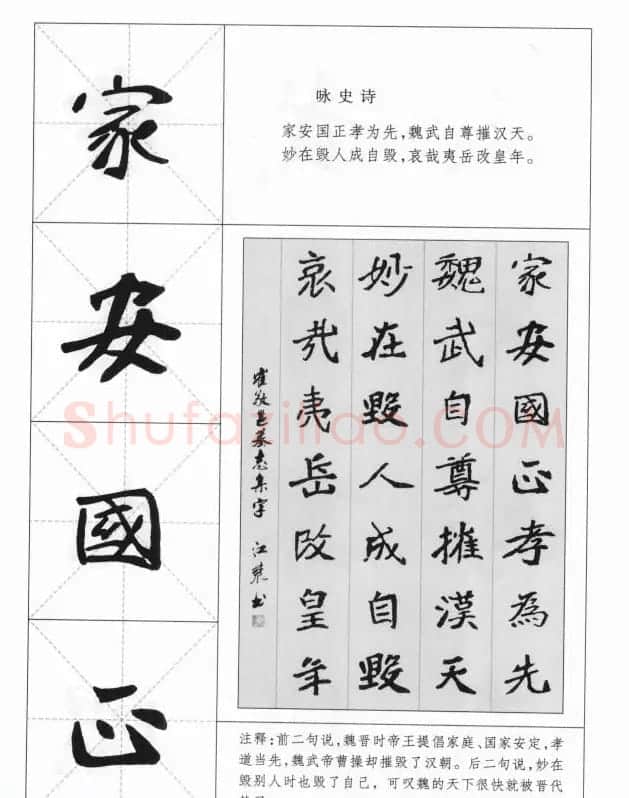 家
安
國
正
咏史诗
家安国正孝为先，魏武自尊摧汉天。
妙在毁人成自毁，哀哉夷岳改皇年。
家安國正孝為先
魏武自尊摧漢天
妙在毀人成自毀
哀哉夷岳改皇年
崔敬邕墓志集字 江東书
ShufaziliaO.COM
注释：前二句说，魏晋时帝王提倡家庭、国家安定，孝
道当先，魏武帝曹操却摧毁了汉朝。后二句说，妙在
毁别人时也毁了自己，可叹魏的天下很快就被晋代